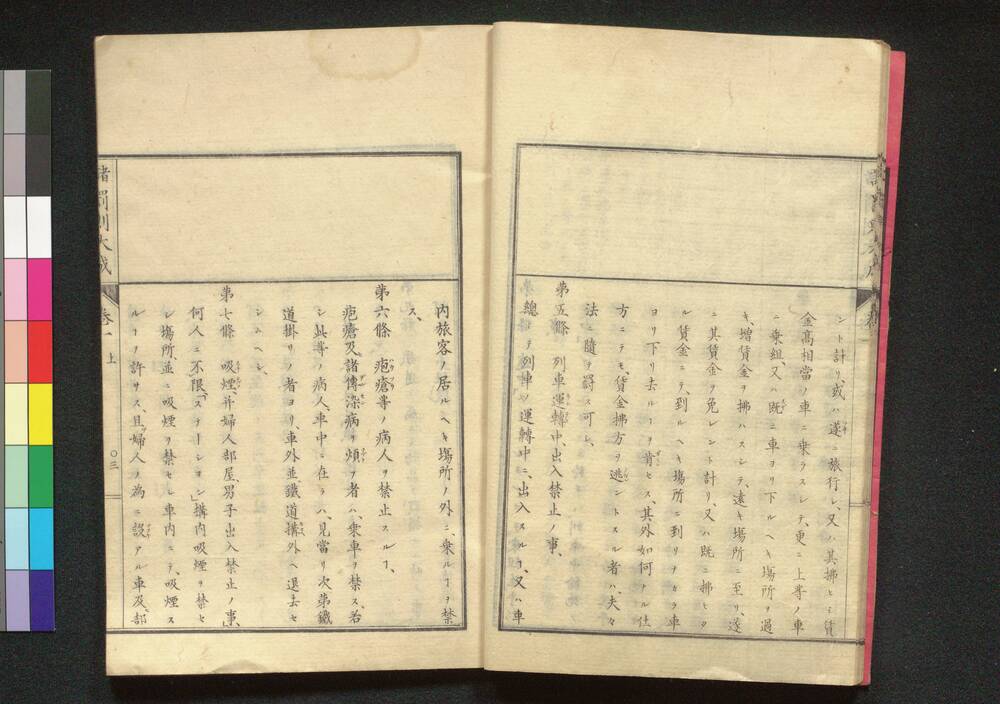 ント計リ、或ハ遂ニ旅行シ、又ハ其拂ヒシ賃
金高相當ノ車ニ乗ラスシテ、更ニ上等ノ車
ニ乗組、又ハ既ニ車ヨリ下ルヘキ場所ヲ過
キ、増賃金ヲ拂ハスシテ、遠キ場所ニ至リ、遂
ニ其賃金ヲ免レント計リ、又ハ既ニ拂ヒタ
ル賃金ニテ、到ルヘキ場所ニ到リナカラ車
ヨリ下リ去ルヿヲ肯セス、其外如何ナル仕
方ニテモ、賃金拂方ヲ逃ントスル者ハ、夫々
法ニ随テ罰ス可シ、
第五條 列車運轉中、出入禁止ノ事、
總テ列車ノ運轉中ニ、出入スルヿ、又ハ車
内旅客ノ居ルヘキ場所ノ外ニ、乗ルヿヲ禁
ス、
第六條 疱瘡等ノ病人ヲ禁止スルヿ、
疱瘡及諸傳染病ヲ煩フ者ハ、乗車ヲ禁ス、若
シ此等ノ病人、車中ニ在ラハ、見當リ次第鐵
道掛リノ者ヨリ、車外並鐵道構外ヘ退去セ
シムヘシ、
第七條 吸煙并婦人部屋、男子出入禁止ノ事、
何人ニ不限、「ステーシヨン」構内吸煙ヲ禁セ
シ場所、並ニ吸煙ヲ禁セシ車内ニテ、吸煙ス
ルヿヲ許サス、且婦人ノ為ニ設アル車及、部
諸罰則大成
卷一 上
〇三